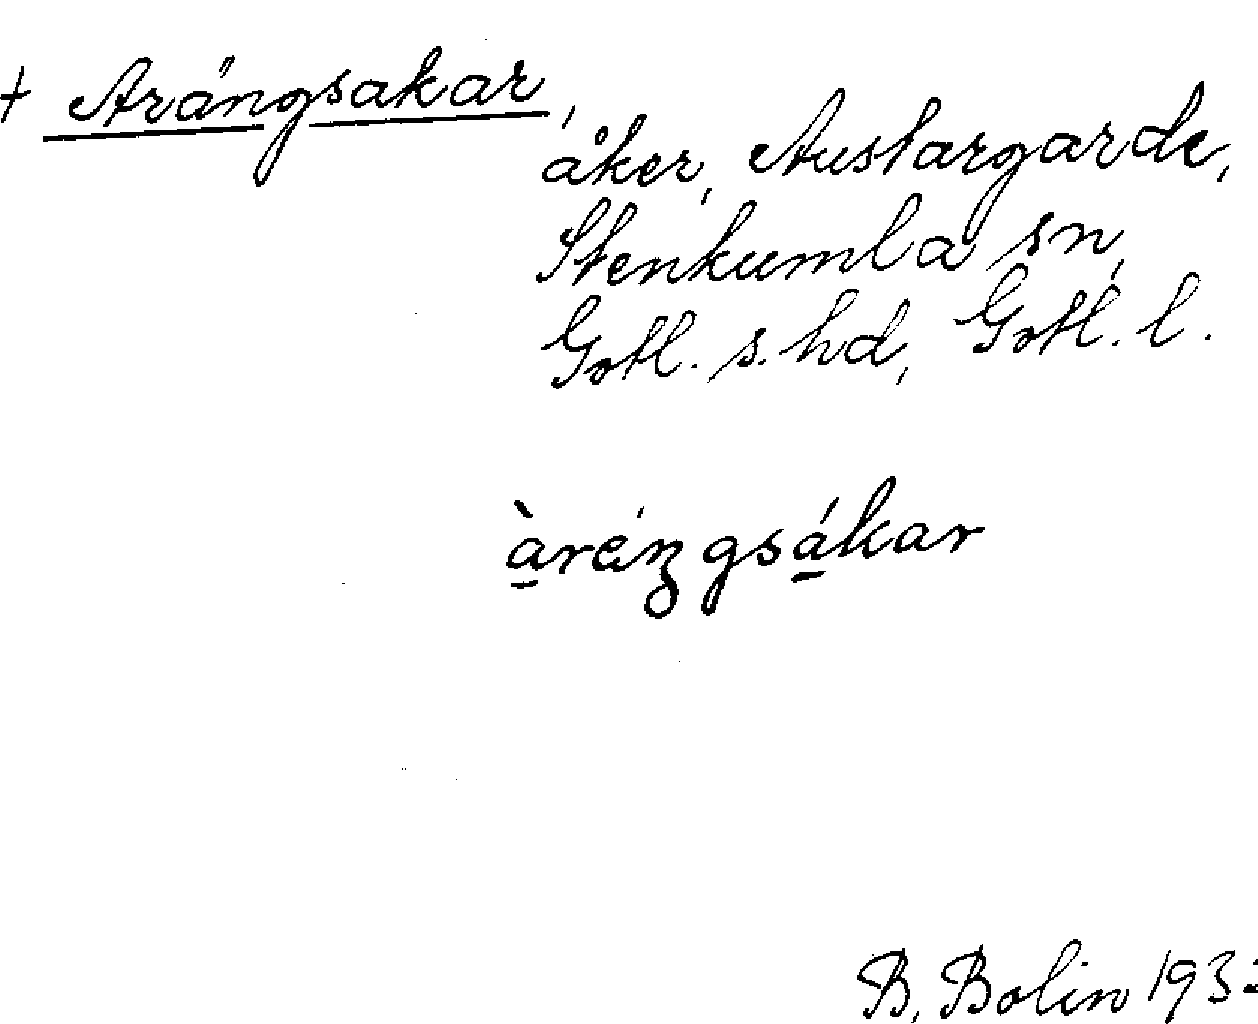 + Arängsakar,
åker, Austargarde,
Stenkumla sn,
Gotl. s. hd, Gotl. l.
àréŋgsákar
B. Bolin